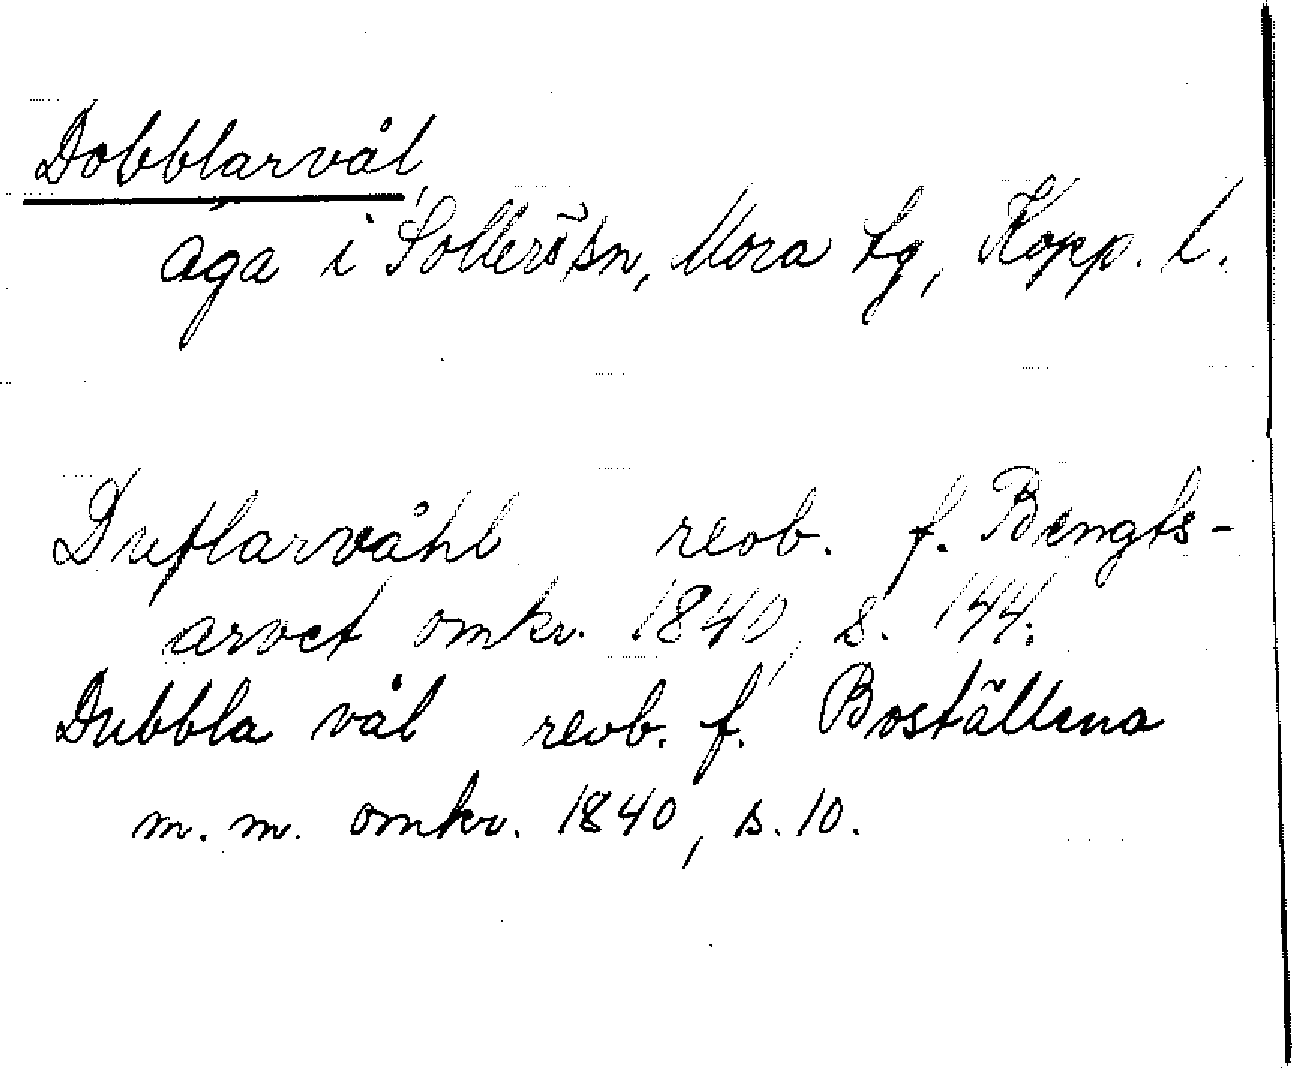 Dobblarvål
äga i Sollerö sn, Mora tg, Kopp. l.
Duflarvåhl revb. f. Bengts-
arvet omkr. 1840, s. 144;
Dubbla vål revb. f. Boställena
m. m. omkr. 1840, s. 10.